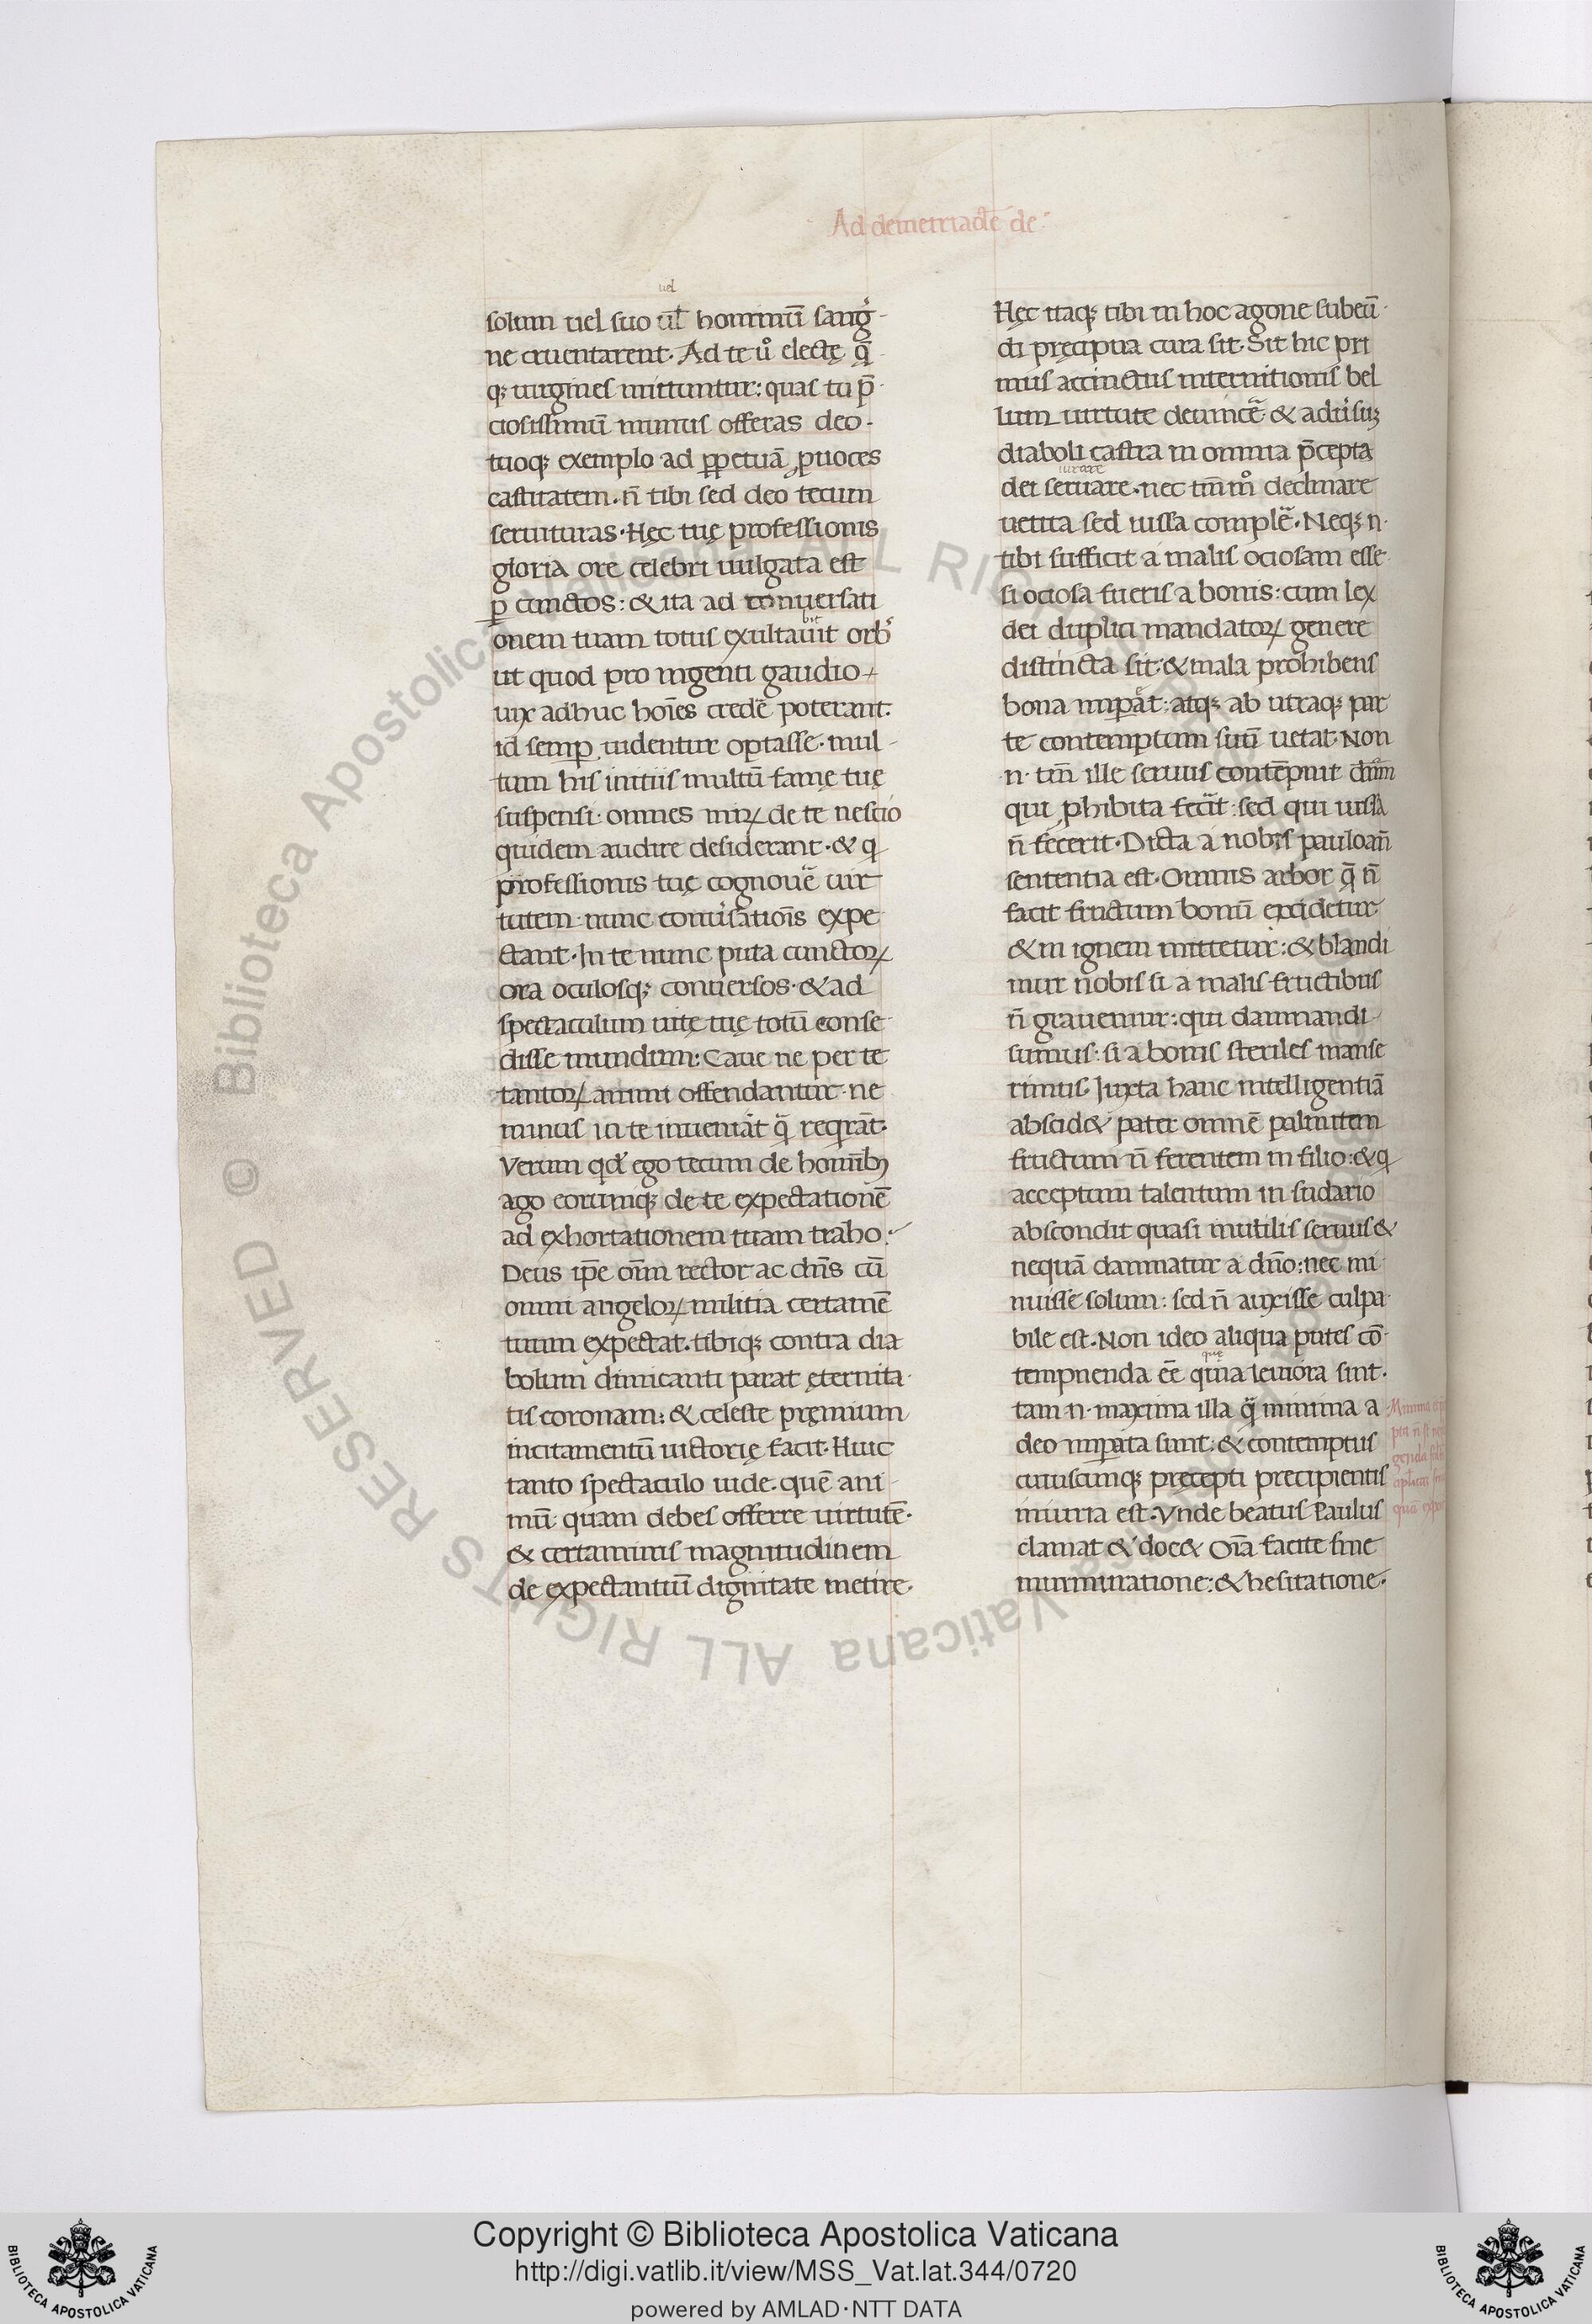 Ad demetriadẽ de
uel
solum uel suo ul̃ hominũ sangͥ
ne cruentarent. Ad te uͦ electę q̃
qꝫ uirgines mittuntur: quas tu p̃
ciosissimũ munus offeras deo.
tuoqꝫ exemplo ad ꝑpetuã ꝓuoces
castitatem. ñ tibi sed deo tecum
seruituras. Hęc tuę professionis
gloria ore celebri uulgata est
ꝑ cunctos: & ita ad conuersati
onem tuam totus exultauit orbꝰ
ut quod pro ingenti gaudio
uix adhuc hoĩes credẽ poterant.
id semꝑ uidentur optasse. mul
tum his initiis multũ famę tuę
suspensi. omnes mirꝝ de te nescio
quidem audire desiderant. & q
professionis tuę cognouẽ uir
tutem. nunc conuͥsationis expe
ctant. In te nunc puta cunctoꝝ
ora oculosqꝫ conuersos. & ad
spectaculum uitę tuę totũ conse
disse mundum: Caue ne per te
tantoꝝ animi offendantur. ne
minus in te inueniãt q̃ reqrãt.
Verum qd̃ ego tecum de hominibꝫ
ago eorumqꝫ de te expectationẽ
ad exhortationem tuam traho.
Deus ip̃e om̃m rector ac dñs cũ
omni angeloꝝ militia certamẽ
tuum expectat. tibiqꝫ contra dia
bolum dimicanti parat ęternita
tis coronam: & celeste pręmium
incitamentũ uictorię facit. Huic
tanto spectaculo uide. quẽ ani
mũ quam debes offerre uirtutẽ.
& certaminis magnitudinem
de expectantiũ dignitate metire.
Hęc itaqꝫ tibi in hoc agone subeũ
di pręcipua cura sit. Sit hic pri
mus accinctus internitionis bel
lum uirtute deuincẽ. & aduͥsuꝫ
diaboli castra in omnia p̃cepta
dei seruare. nec tm̃mͦ declinare
uetita sed iussa complẽ. Neqꝫ n.
tibi sufficit a malis ociosam esse
si ociosa fueris a bonis: cum lex
dei duplici mandatoꝝ genere
distincta sit. & mala prohibens
bona imperãt: atqꝫ ab utraqꝫ par
te contemptum suũ uetat. Non
n. tm̃ ille seruus contẽpnit dnm̃
qui ꝓhibita fecit: sed qui iussa
ñ fecerit. Dicta a nobis pauloañ
sententia est. Omnis arbor q̃ ñ
facit fructum bonũ excidetur
& in ignem mittetur: & blandi
mur nobis si a malis fructibus
ñ grauemur: qui damnandi
sumus: si a bonis steriles manse
rimus. Iuxta hanc intelligentiã
abscid& pater omnẽ palmitem
fructum ñ ferentem in filio: & q
acceptum talentum in sudario
abscondit quasi inutilis seruus &
nequã damnatur a dño: nec mi
nuisse solum: sed ñ auxisse culpa
bile est. Non ideo aliqua putes cõ
que
tempnenda eẽ quia leuiora sint.
tam n. maxima illa q̃ minima a
deo imꝑata sunt: & contemptus
cuiuscumqꝫ precepti precipientis
iniuria est. Vnde beatus Paulus
clamat & doc& Oĩa facite sine
murmuratione: & hesitatione.
Copyright © Biblioteca Apostolica Vaticana
http://digi.vatlib.it/view/MSS_Vat.lat.344/0720
powered by AMLAD·NTT DATA
BIBLIOTECA APOSTOLICA VATICANA
BIBLIOTECA APOSTOLICA VATICANA
© Biblioteca Apostolica Vaticana ALL RIGHTS RESERVED
© Biblioteca Apostolica Vaticana ALL RIGHTS RESERVED